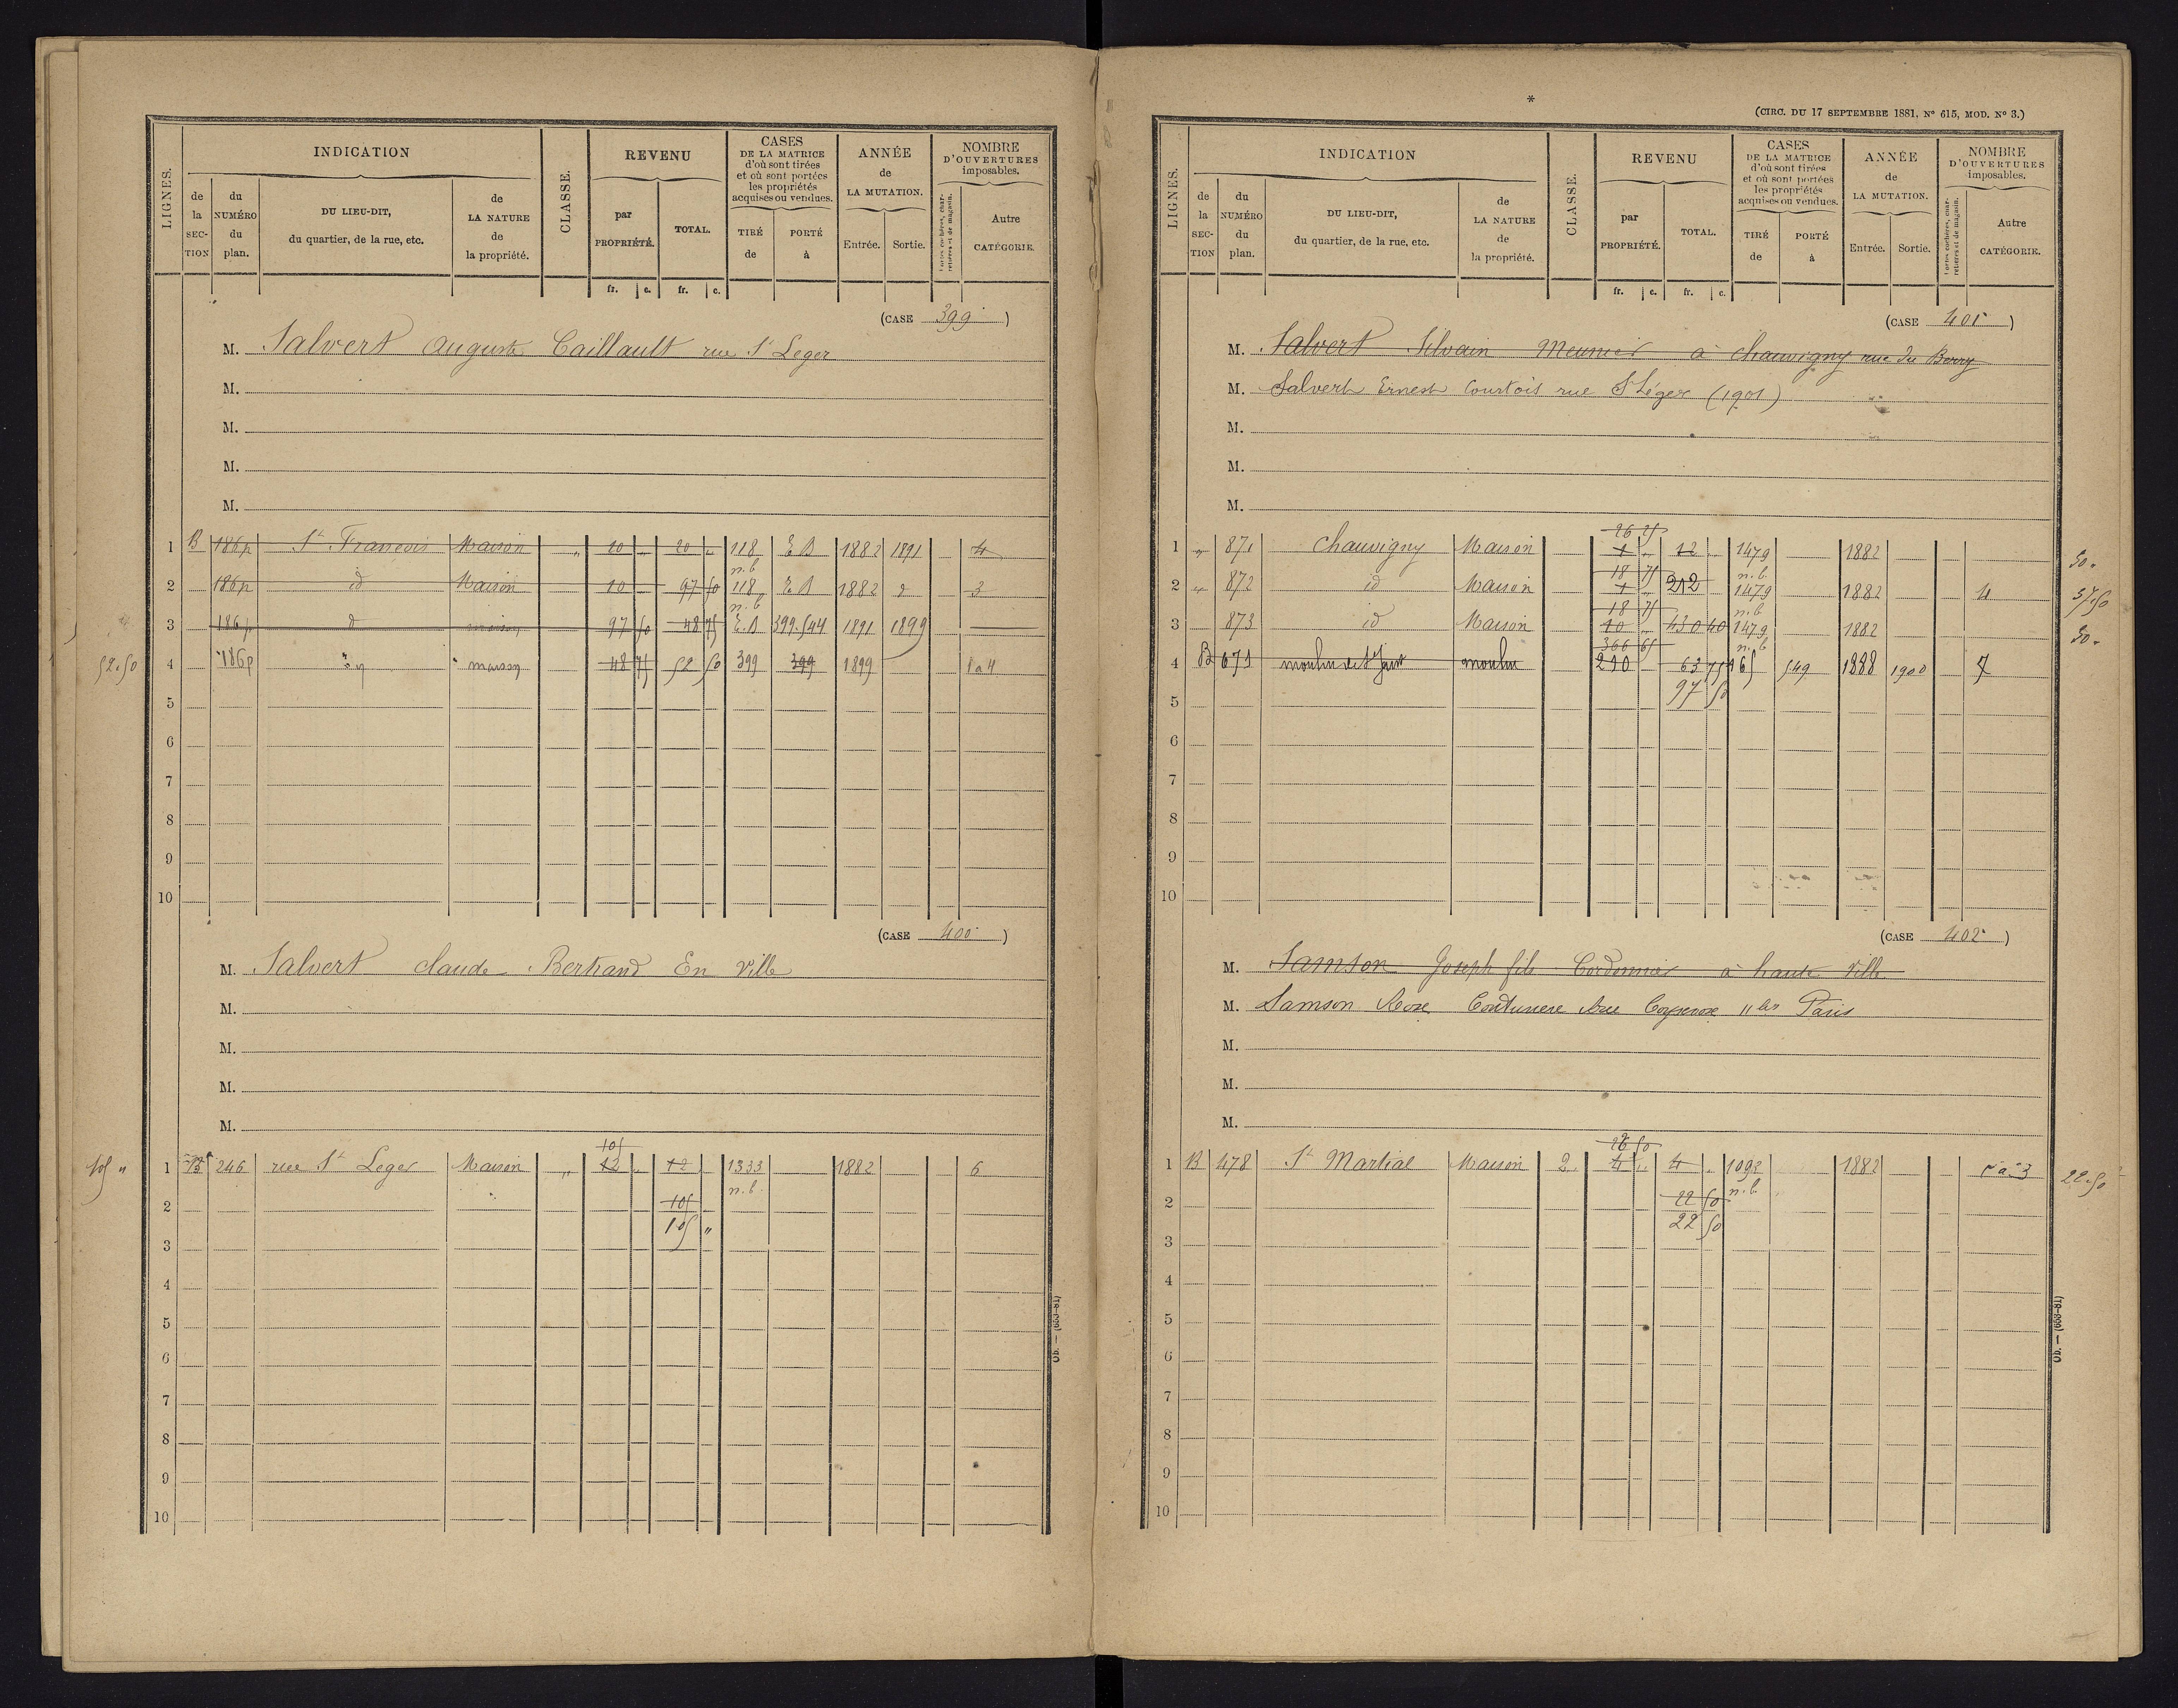 LIGNES.
INDICATION
de la SECTION
du NUMÉRO du plan.
DU LIEU-DIT, du quartier, de la rue, etc.
de LA NATURE de la propriété.
CLASSE.
REVENU
par PROPRIÉTÉ.
TOTAL.
fr. c. fr. c.
CASES DE LA MATRICE d'où sont tirées et où sont portées les propriétés acquises ou vendues.
TIRÉ de
PORTÉ à
ANNÉE de LA MUTATION.
Entrée. Sortie.
NOMBRE D'OUVERTURES imposables.
Portes cochères, charretières et de magasin.
Autre CATÉGORIE.
(CASE 399)
M. Salvert Auguste Caillault rue St Leger
M.
M.
M.
M.
1 B 186p St Francois Maison " 20 " 20 " 118 E B 1882 1891 4
n.b
2 186p id Maison 10 97 50 118 E B 1882 d 3
n.b
3 186p d maison 97 50 48 75 E.B 399.544 1891 1899
52.50 4 186p maison 48 75 52 50 399 399 1899 1 a 4
5
6
7
8
9
10
(CASE 400)
M. Salvert claude Bertrand En Ville
M.
M.
M.
M.
105
105 " 1 B 246 rue St Leger Maison " 12 12 1333 1882 6
n.b.
2 105
105 "
3
4
5
6
7
8
9
10
Ob. — (899-81)
*
(CIRC. DU 17 SEPTEMBRE 1881, No 615, MOD. No 3.)
LIGNES.
INDICATION
de la SECTION
du NUMÉRO du plan.
DU LIEU-DIT, du quartier, de la rue, etc.
de LA NATURE de la propriété.
CLASSE.
REVENU
par PROPRIÉTÉ.
TOTAL.
fr. c. fr. c.
CASES DE LA MATRICE d'où sont tirées et où sont portées les propriétés acquises ou vendues.
TIRÉ de
PORTÉ à
ANNÉE de LA MUTATION.
Entrée. Sortie.
NOMBRE D'OUVERTURES imposables.
Portes cochères, charretières et de magasin.
Autre CATÉGORIE.
(CASE 401)
M. Salvert Silvain Meunier à chauvigny rue du Berry
M. Salvert Ernest Courtois rue St Léger (1901)
M.
M.
M.
26 25
1 " 871 Chauvigny Maison 12 1479 1882 30 "
18 75 n.b.
2 " 872 id Maison 212 1479 1882 4 57.50
18 75 n.b
3 873 id Maison 10 430 40 1479 1882 30 "
366 65 n.b
4 B 671 moulin de St Just moulin 210 63 75 165 549 1888 1900 7
97 50
5
6
7
8
9
10
(CASE 402)
M. Samson Joseph fils Cordonnier à haute Ville
M. Samson Rose Couturiere Rue 11 bis Paris
M.
M.
M.
26 50
1 B 478 St Martial Maison 2 4 " 4 " 1092 1882 a 3 22.50
2 22 50 n.b.
22 50
3
4
5
6
7
8
9
10
Ob. — (899-81)